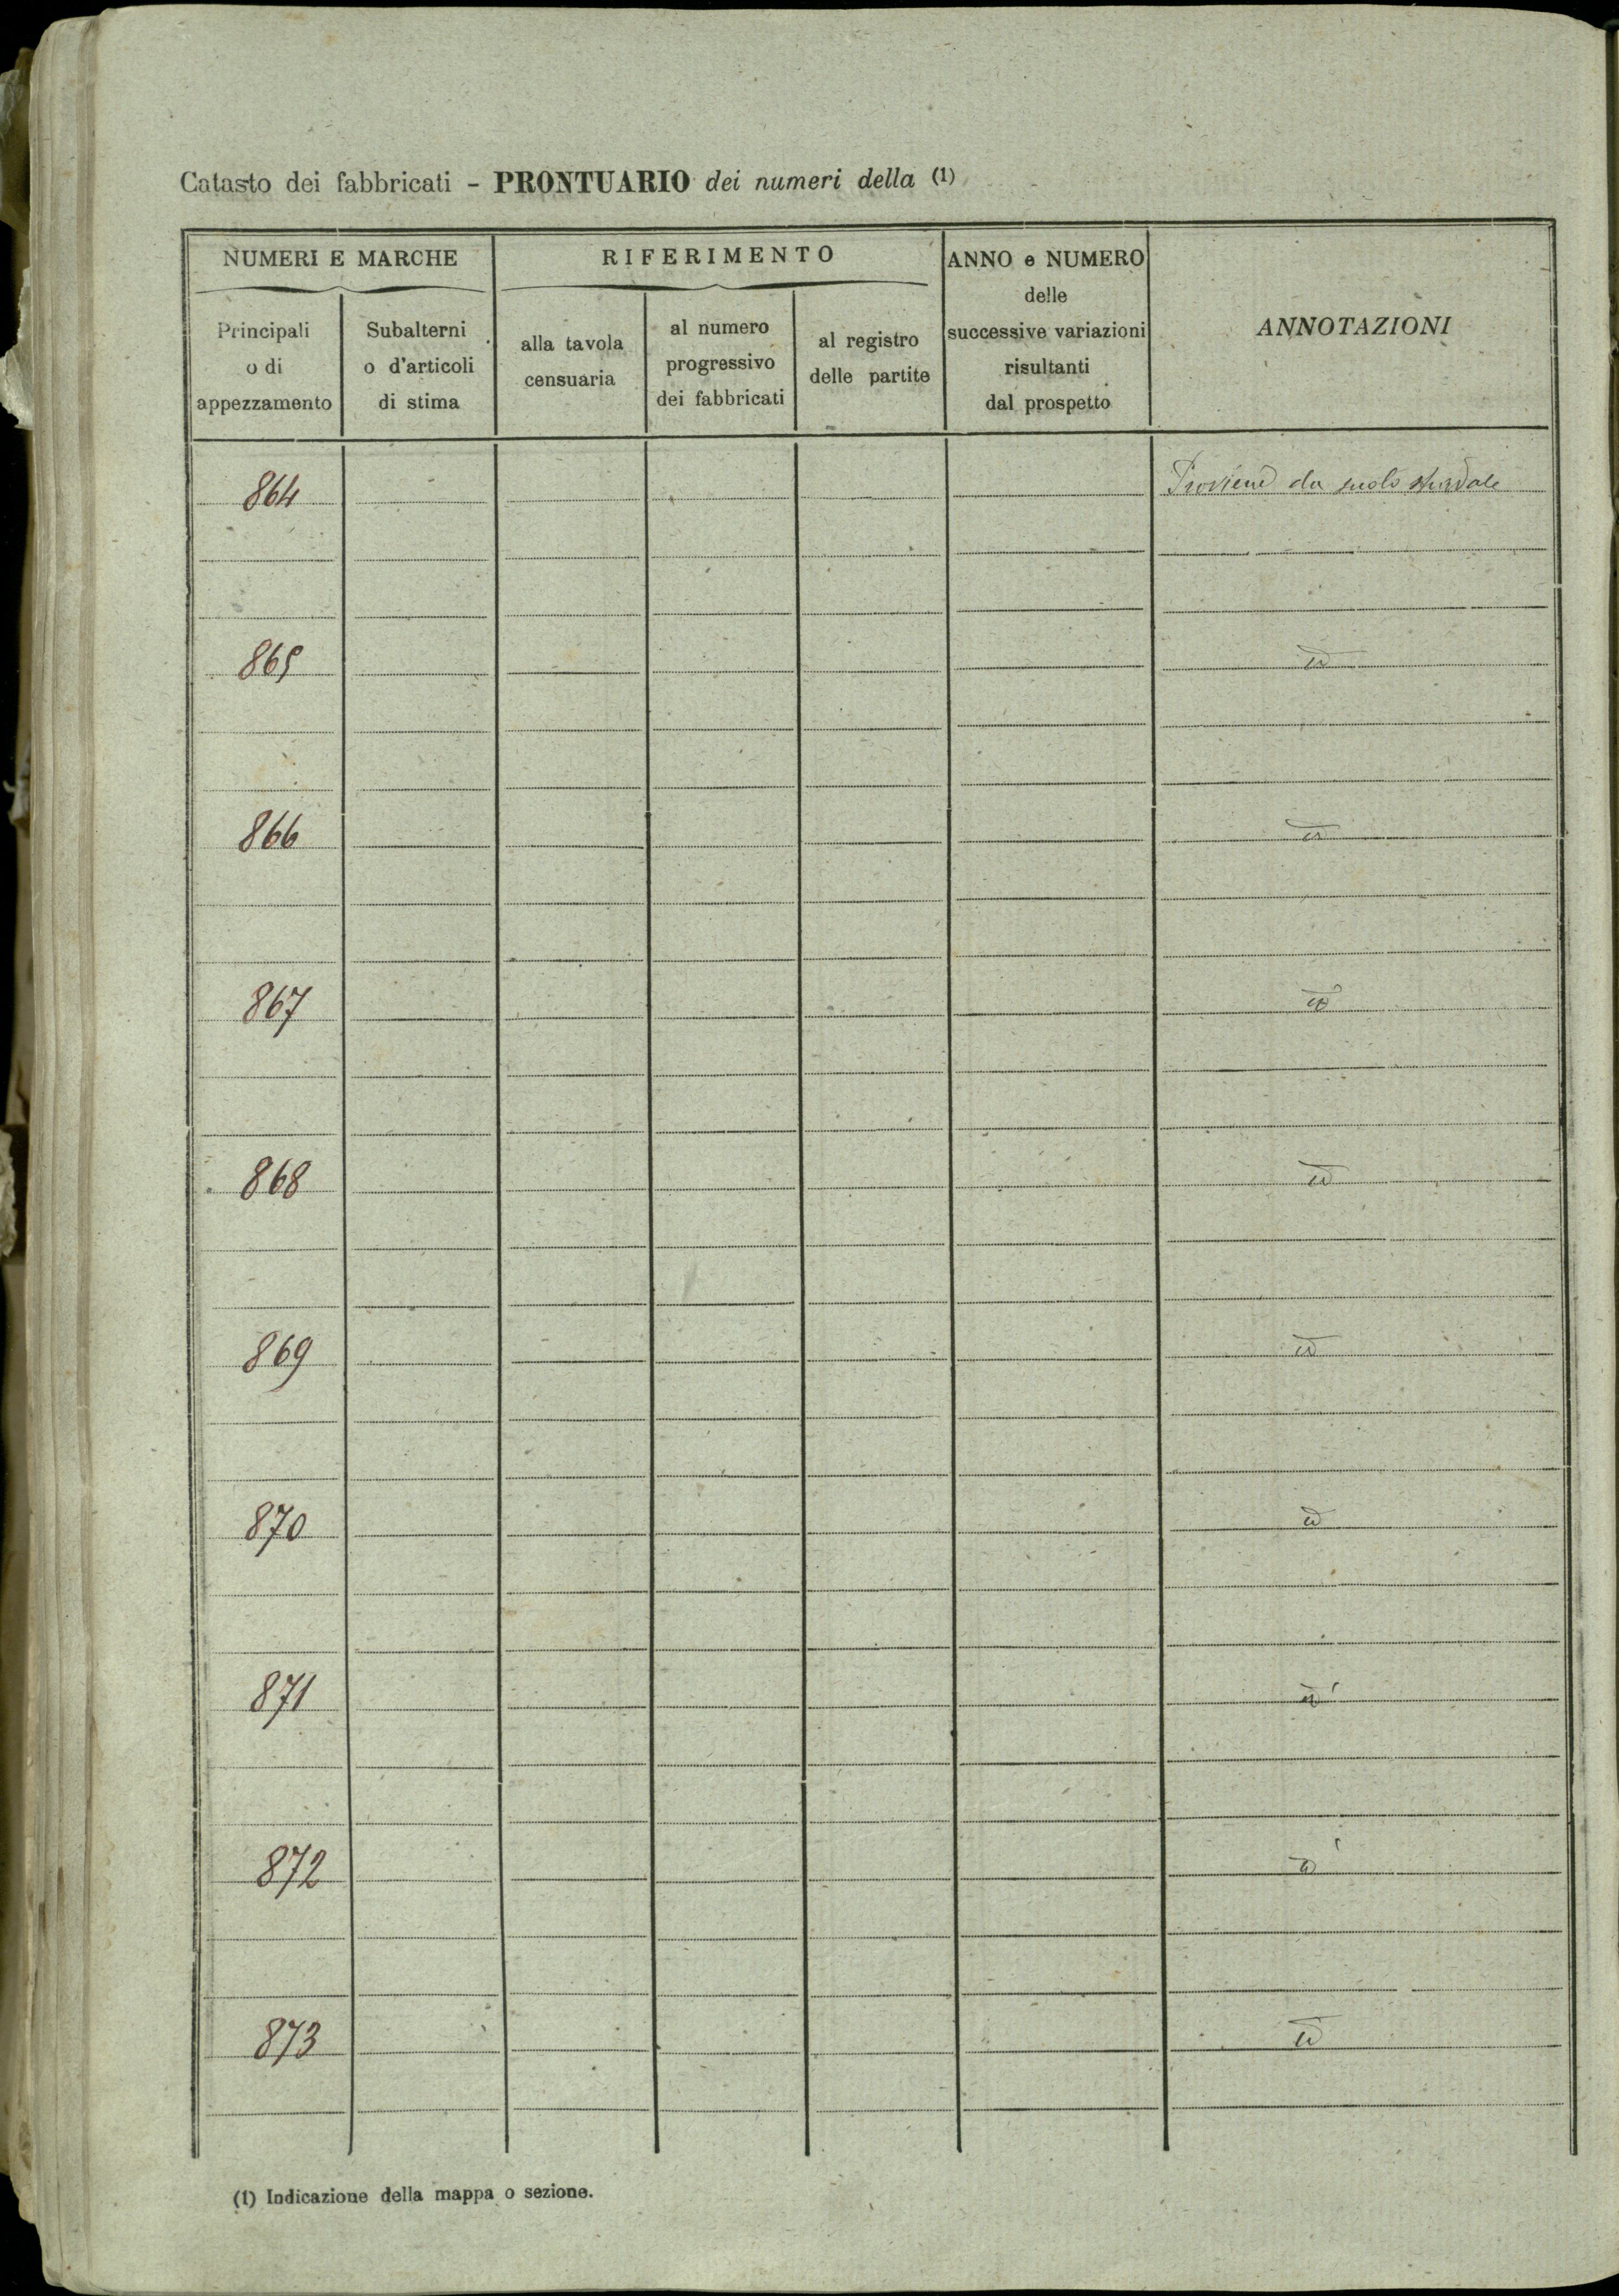 Catasto dei fabbricati - PRONTUARIO dei numeri della (1)
NUMERI E MARCHE
RIFERIMENTO
ANNO e NUMERO
delle
successive variazioni
risultanti
dal prospetto
ANNOTAZIONI
Principali
o di
appezzamento
Subalterni
o d'articoli
di stima
alla tavola
censuaria
al numero
progressivo
dei fabbricati
al registro
delle partite
864 Proviene da suolo stradale
865 id
866 id
867 id
868 id
869 id
870 id
871 id
872 id
873 id
(1) Indicazione della mappa o sezione.